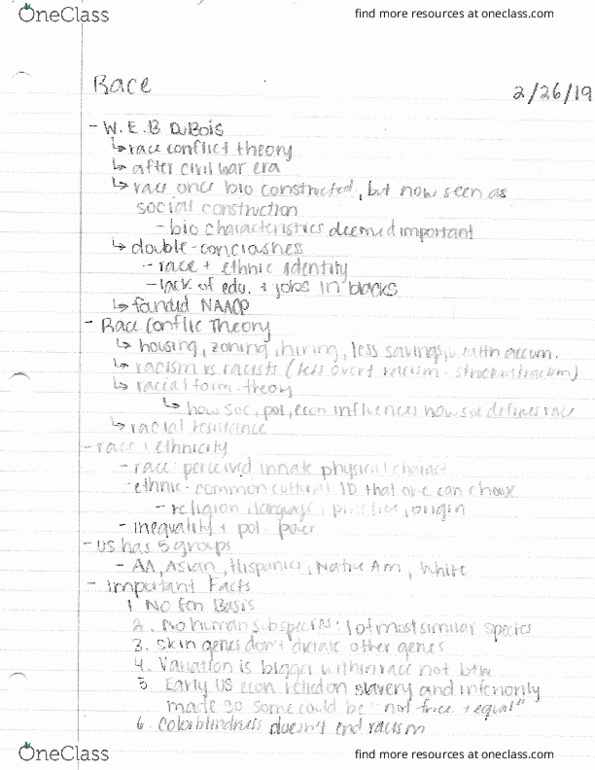 OneClass
find more resources at oneclass.com
Race
2/26/19
- W.E.B DuBois
↳ race conflict theory
↳ after civil war era
↳ race once bio constructed, but now seen as
social construction
- bio characteristics deemed important
↳ double-conciashes
- race + ethnic identity
- lack of edu. + jobs in blacks
↳ founded NAACP
- Race Conflic Theory
↳ housing, zoning, hiring, less savings, wealth accum.
↳ racism vs racists (less overt racism - structural racism)
↳ racial form. theory
↳ how soc, pol, econ influences how soc defines race
↳ racial resistance
- race + ethnicity
- race: perceived innate physical charact.
- ethnic - common cultural ID that one can choox
- religion, language, practice, origin
- inequality + pol. power
- US has 5 groups
- AA, Asian, Hispanics, Native Am, White
- Important Facts
1. No Gen Basis
2. No human subspecies: 1 of most similar species
3. Skin genes don't dictate other genes
4. Variation is bigger within race not btw
5. Early US econ relied on slavery and
made so some could be "not free + equal"
6. Colorblindness doesn't end racism
OneClass
find more resources at oneclass.com